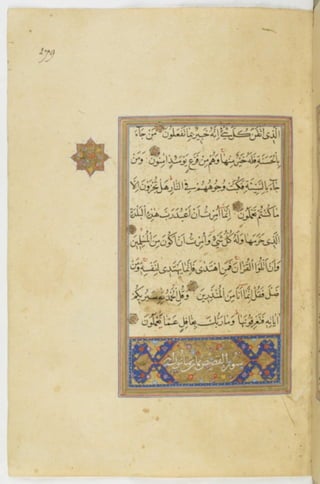 279
الذي اتقن كل شيء انه خبير بما تفعلون من جاء
بالحسنة فله خير منها وهم من فزع يومئذ امنون ومن
جاء بالسيئة فكبت وجوههم في النار هل تجزون الا
ما كنتم تعملون انما امرت ان اعبد رب هذه البلدة
الذي حرمها وله كل شيء وامرت ان اكون من المسلمين
وان اتلوا القران فمن اهتدى فانما يهتدى لنفسه ومن
ضل فقل انما انا من المنذرين وقل الحمد لله سيريكم
اياته فتعرفونها وما ربك بغافل عما تعملون
سورة القصص